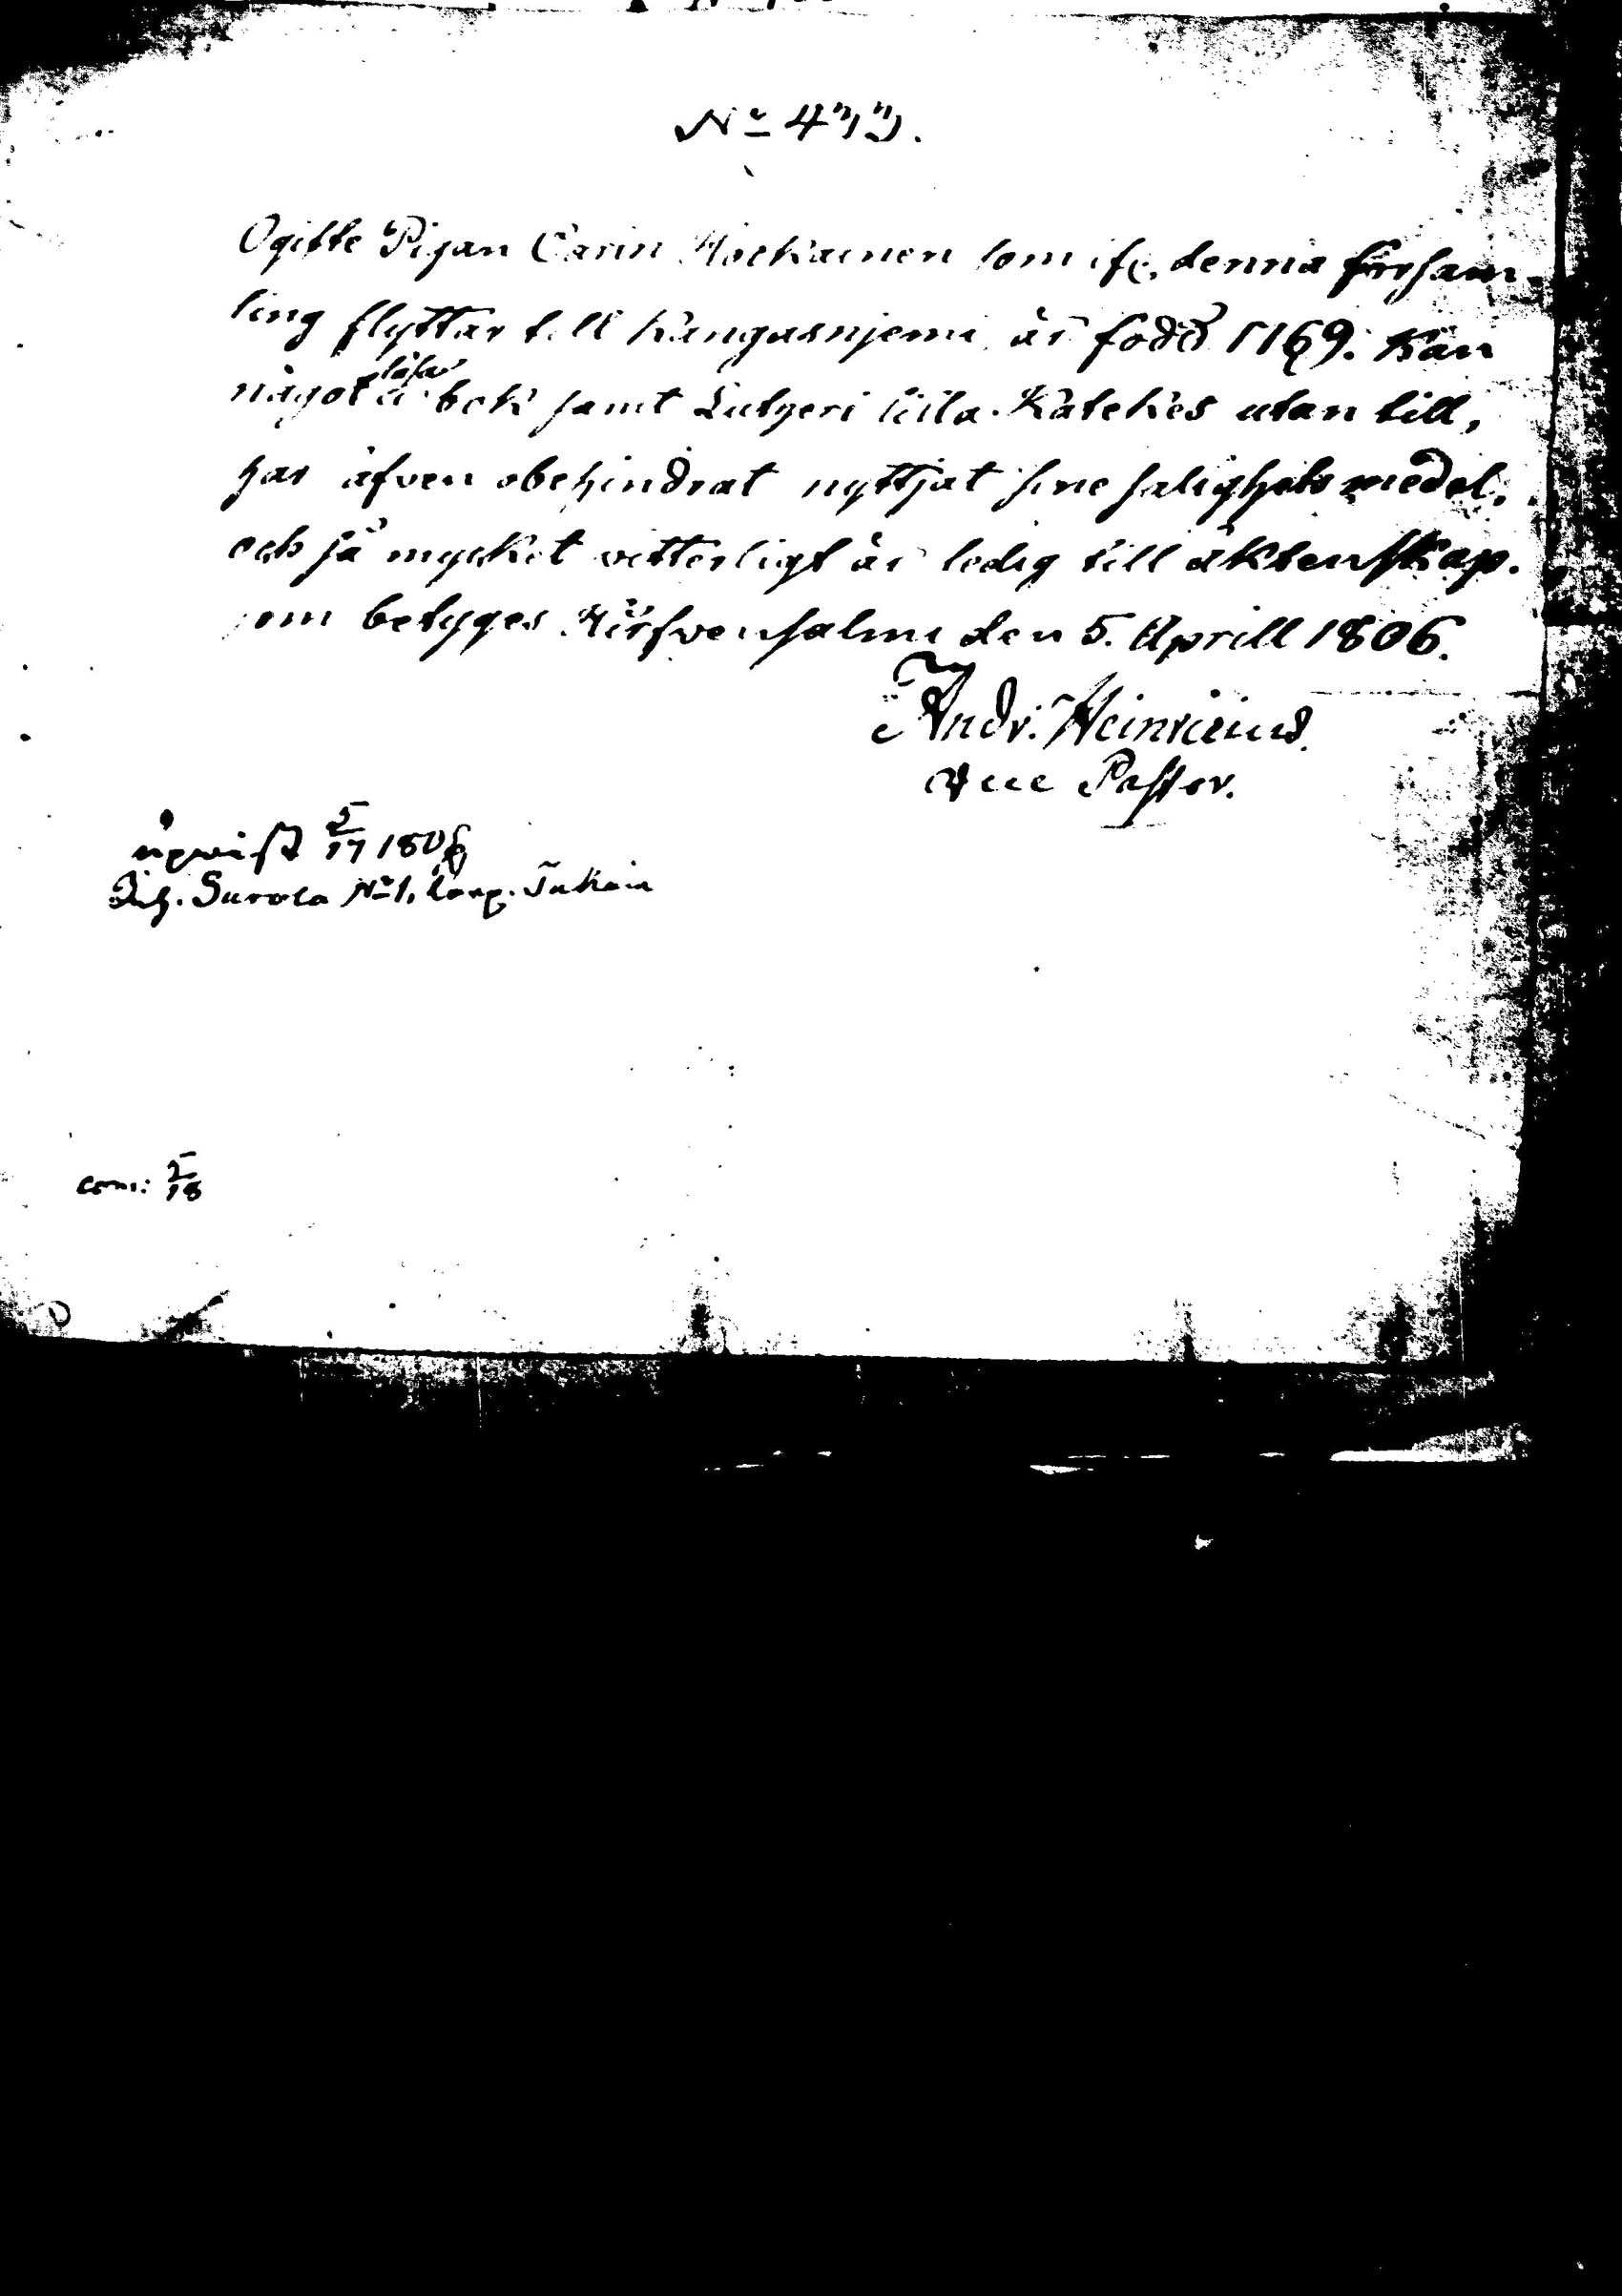 Ogifte Pigan Carin Hockainen som ifr. denna försam-
ling flyttar till Kangasnjemi är född 1769. Kan
något läsa i bok samt Lutheri lilla Katekes utan till,
har äfven obehindrat nyttjat sine salighets medel,
och så mycket vitterligt är ledig till äktenskap.
som betyges Hirfvensalmi den 5. Aprill 1806.
Andr. Heinricius.
Vice Pastor.
upvist 5/17 1806
Nº 1.
com: 5/18